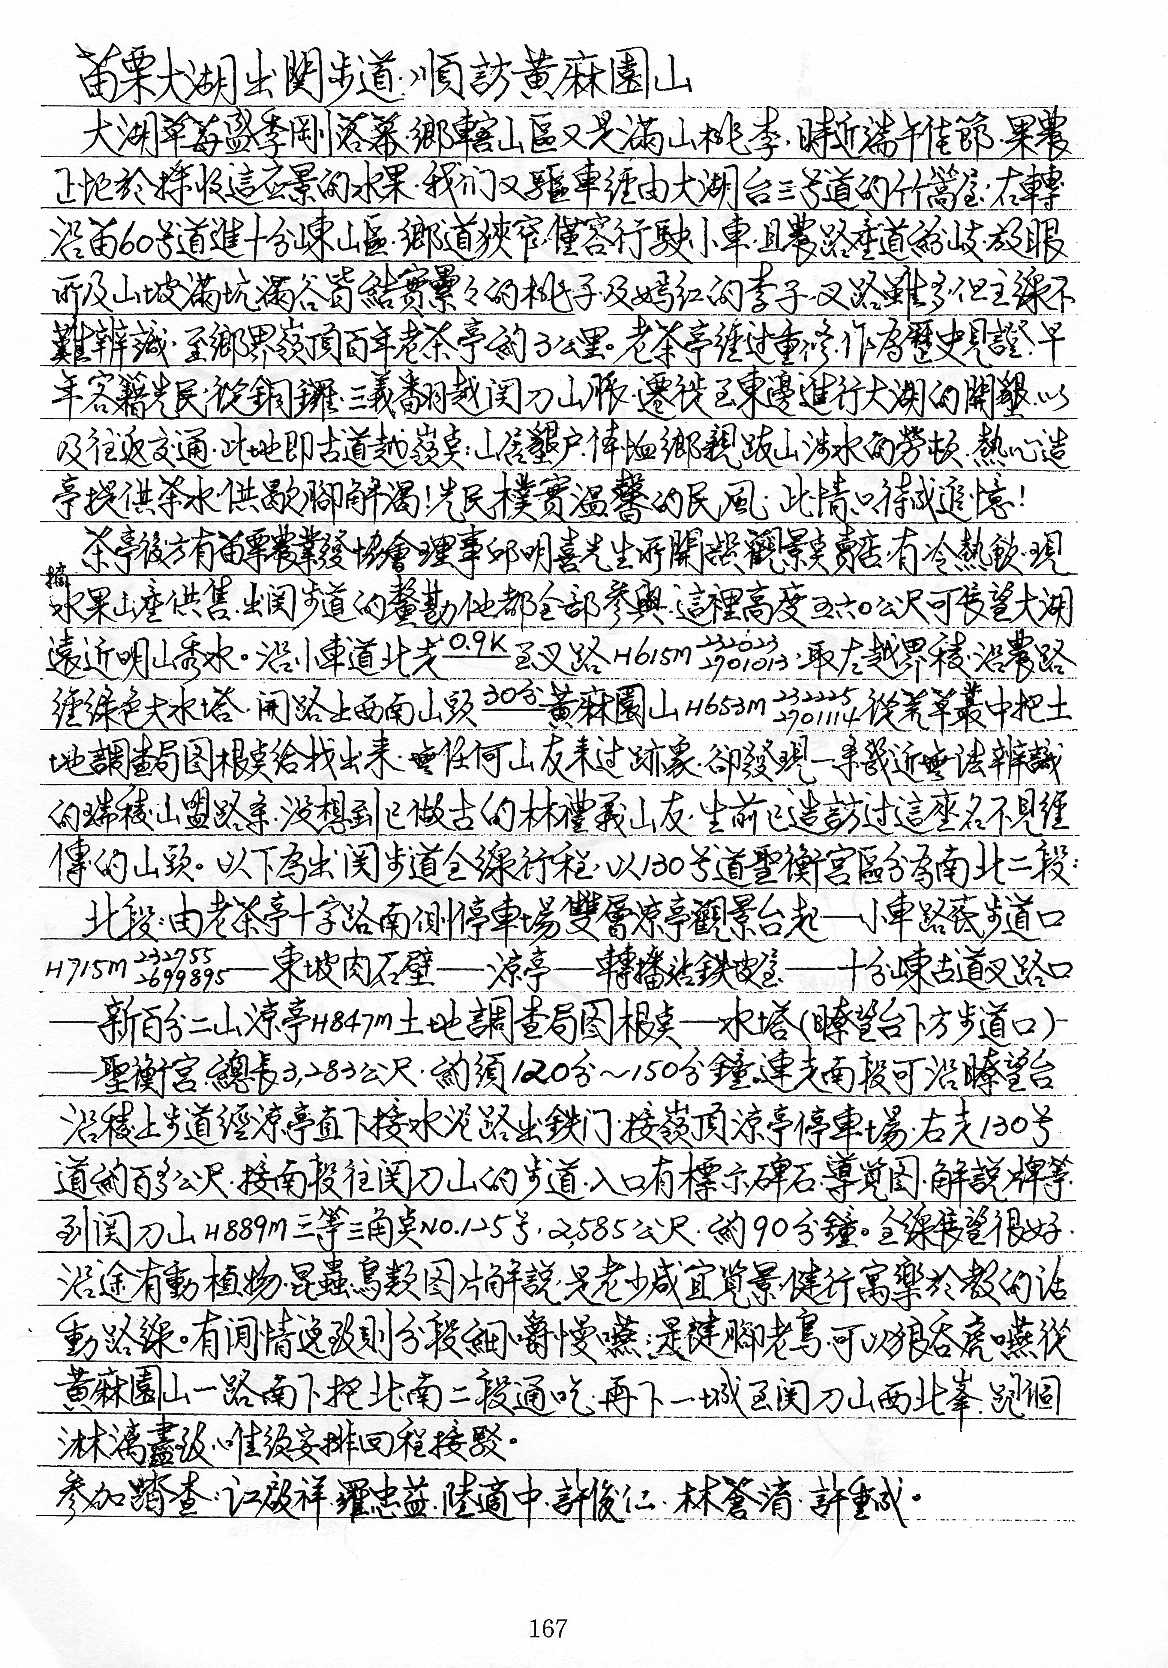 苗栗大湖出関步道:順訪黃麻園山
大湖草莓盛季剛落幕·鄉轄山區又是滿山桃李·時近端午佳節·果農
正忙於採收這应景的水果·我们又驅車經由大湖台三号道的竹篙屋·右轉
沿苗60号道進十分崠山區·鄉道狹窄·僅容行駛小車·且農路產道紛歧·放眼
所及山坡滿坑滿谷皆結實纍々的桃子及嫣红的李子·叉路雖多·但主線不
難辨識·至鄉界嶺頂百年老茶亭約3公里。老茶亭經过重修·作為歷史見證·早
年客籍先民·從銅鑼·三義翻越関刀山脈·遷徙至東邊進行大湖的開墾·以
及往返交通·此地即古道越嶺点:山居墾户·体恤鄉親跋山涉水的勞頓·熱心造
亭提供茶水·供歇腳解渴!先民樸實溫馨的民風·此情只待成追憶!
茶亭後方有苗栗農業發協會理事邱明喜先生所開設觀景賣店·有冷熱飲·現
摘水果山產供售·出関步道的釐勘他都全部參與·這裡高度五六0公尺可展望大湖
遠近明山秀水。沿小車道北走0.9K至叉路H615M 232023 2701013·取左越界稜·沿農路
經綠色大水塔·開路上西南山頭30分黃麻園山H653M 232225 2701114從荒草叢中把土
地調查局图根点給找出来·無任何山友来过跡象·卻發現一条幾近無法辨識
的瑞稜·山盟路条·没想到已做古的林禮義山友·生前已造訪过這座名不見經
傳的山頭。以下為出関步道全線行程·以130号道聖衡宮區分為南北二段:
北段:由老茶亭十字路南側停車場雙層凉亭觀景台起—小車路底步道口
H715M 232755 2699895—東坡肉石壁—凉亭—轉播站鉄皮屋—十分崠古道叉路口
—新百分二山凉亭H847M土地調查局图根点—水塔(瞭望台下方步道口)—
—聖衡宮·總長3,283公尺·約須120分~150分鐘·連走南段可沿瞭望台
沿稜上步道經凉亭直下接水泥路出鉄门·接嶺頂凉亭停車場·右走130号
道約百多公尺·接南段往関刀山的步道·入口有標示碑石·導覽图·解説牌等·
到関刀山H889M三等三角点NO.125号·2,585公尺·約90分鐘。全線展望很好·
沿途有動植物·昆蟲鳥類图片解說·是老少咸宜览景·健行寓樂於教的活
動路線。有闲情逸致則分段細嚼慢嚥;是健腳老鳥·可以狼吞虎嚥從
黃麻園山一路南下把北·南二段通吃·再下一城至関刀山西北峯·跑個
淋漓盡致·唯須安排回程接駁。
參加踏查·江啟祥·羅忠益·陸適中·許俊仁·林蒼清·許重成。
167